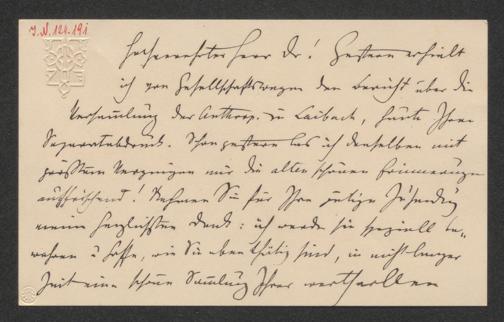 J. N. 124.191
Hochverehrter Herr Dr! Gestern erhielt
ich von Gesellschaftswegen den Bericht über die
Versammlung der Anthrop. in Laibach, heute Ihren
Separatabdruck. Schon gestern las ich denselben mit
größtem Vergnügen mir die alten schönen Erinnerungen
auffrischend! Nehmen Sie für Ihre gütige Zusendung
meinen herzlichsten Dank: ich werde sie speziell be-
wahren u hoffe, wie Sie eben thätig sind, in nicht langer
Zeit eine schöne Samlung Ihrer werthvollen